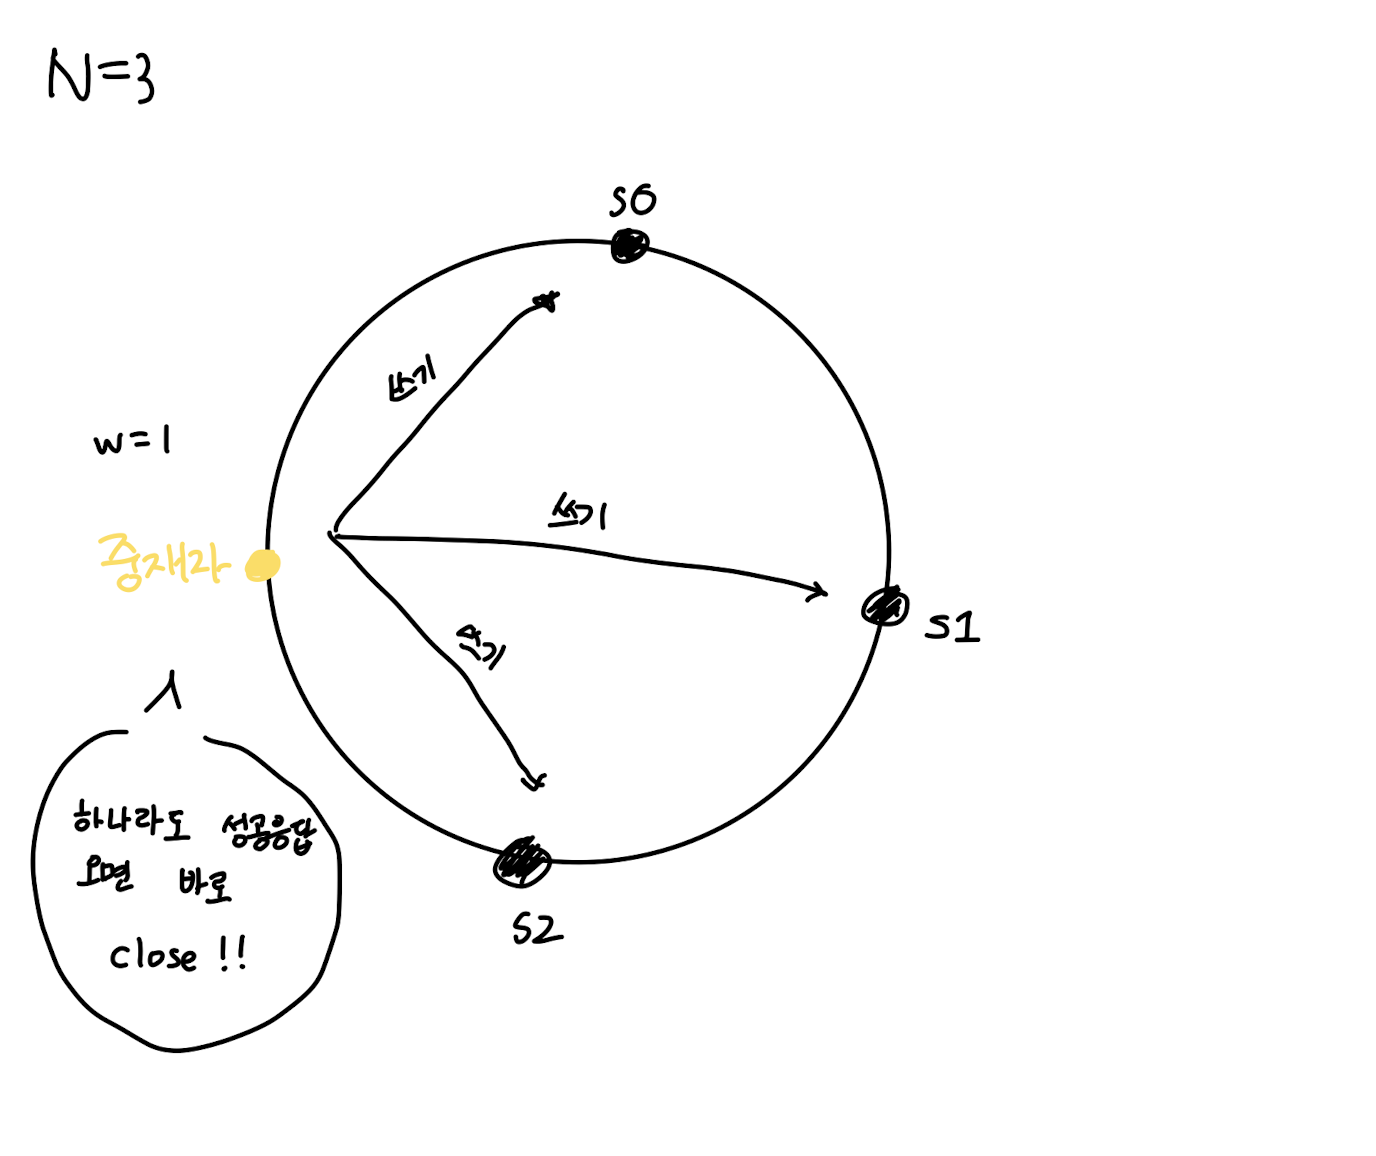 N=3
s0
쓰기
w=1
쓰기
중재자
쓰기
s1
하나라도 성공응답
오면 바로
close !!
s2